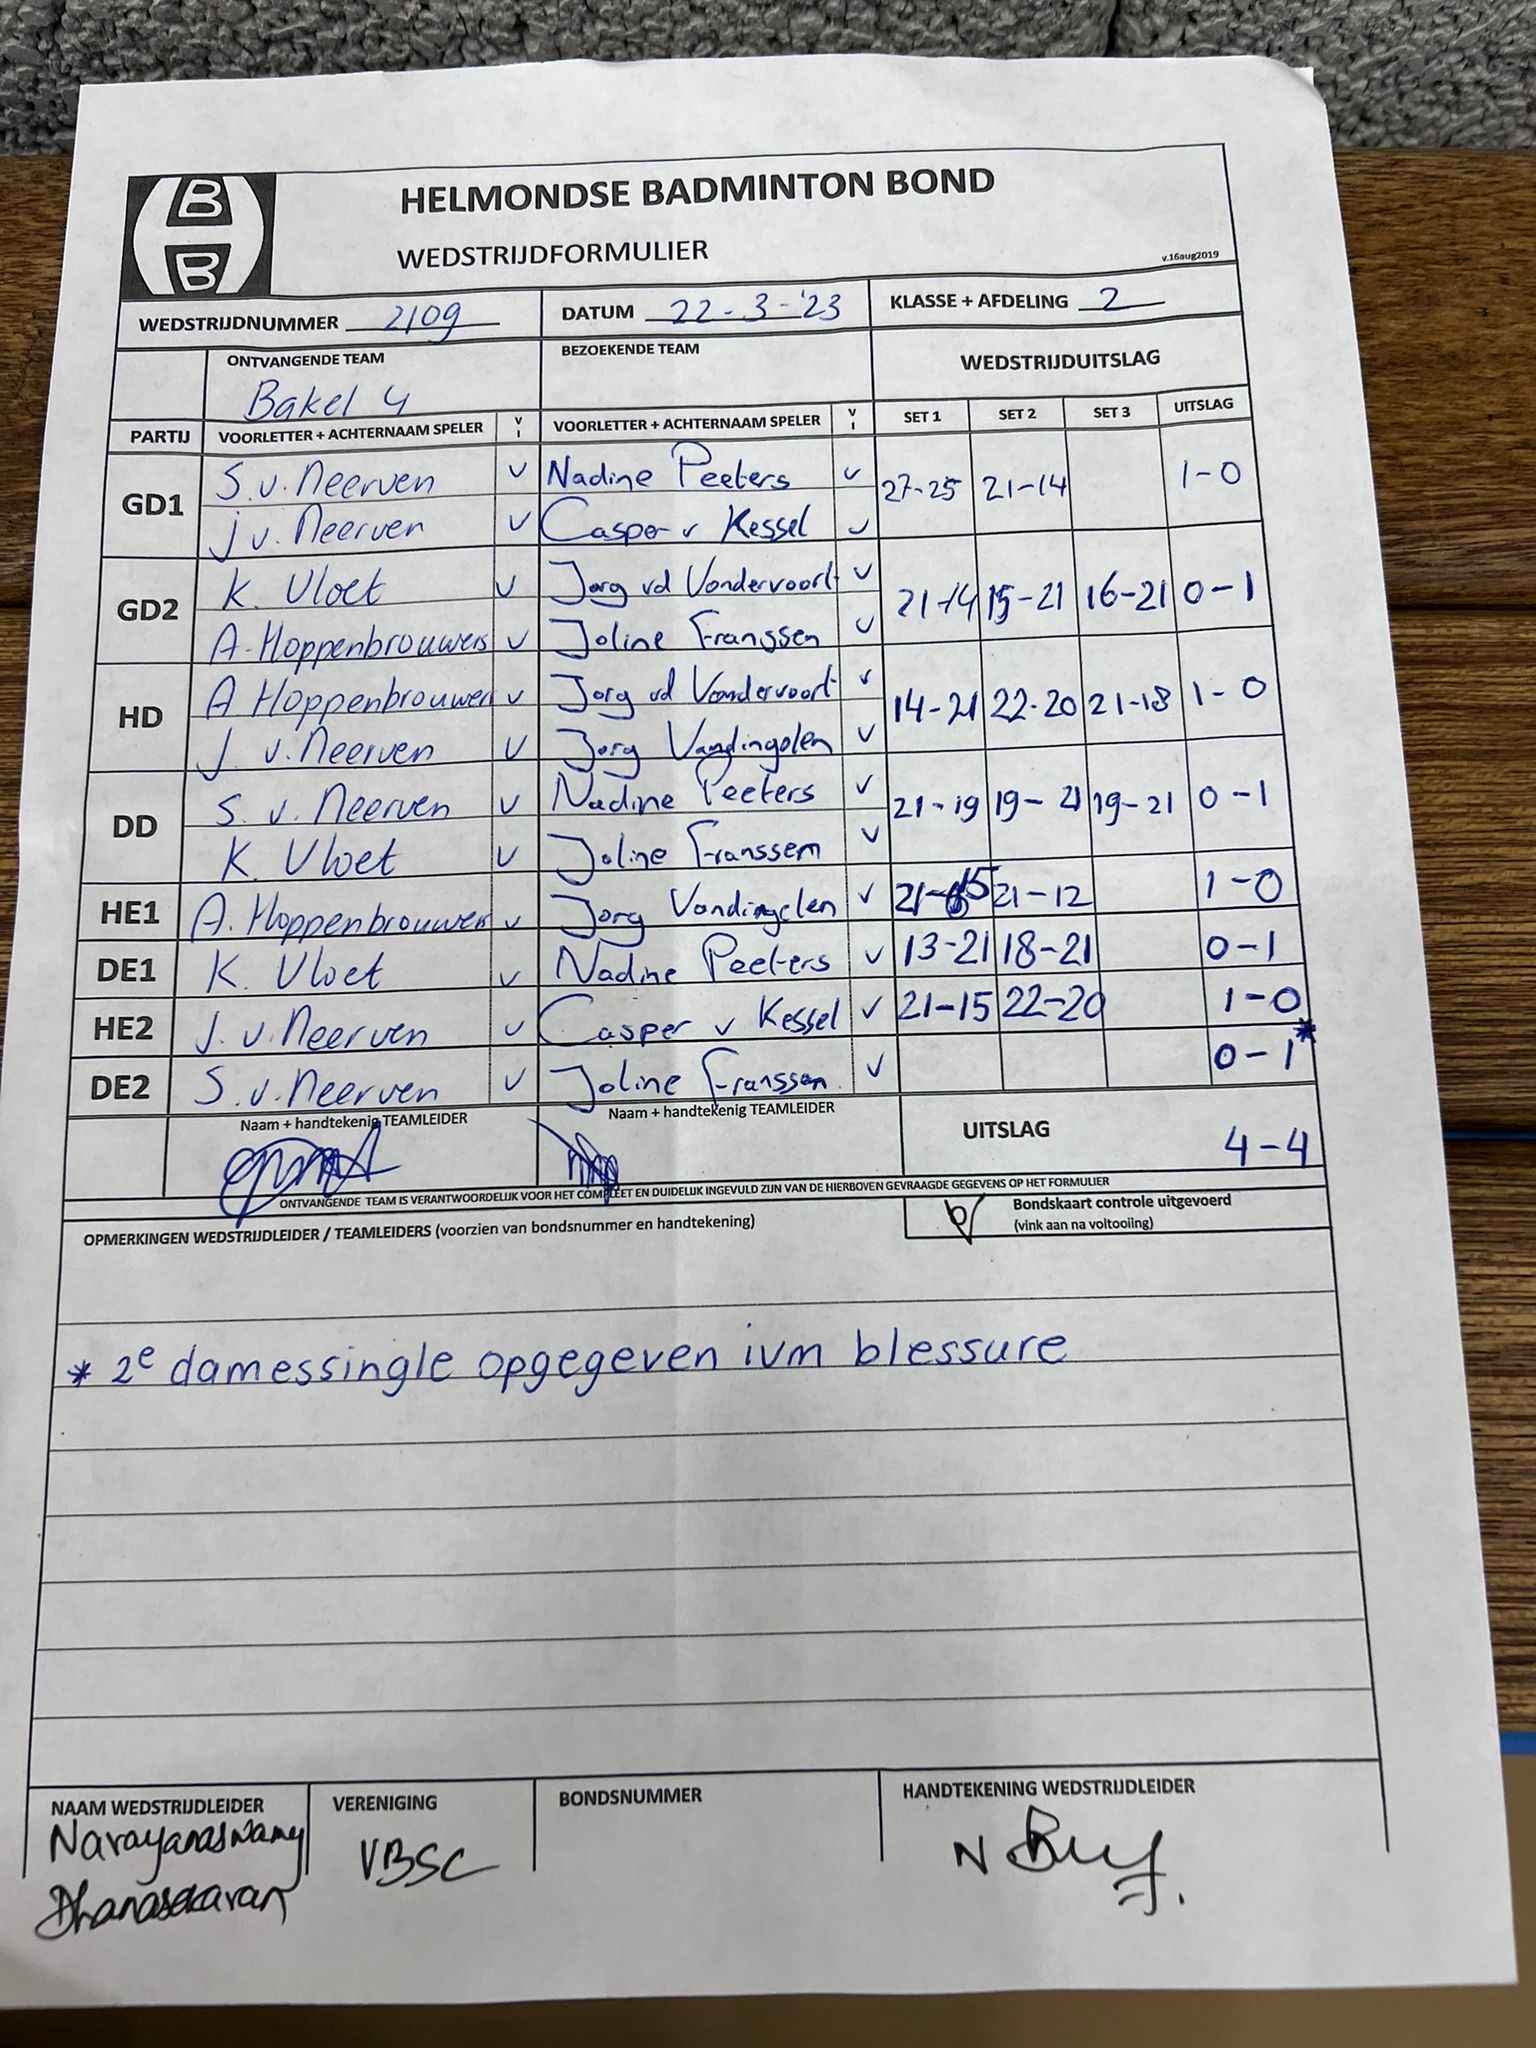 B
B
HELMONDSE BADMINTON BOND
WEDSTRIJDFORMULIER
v.16aug2019
WEDSTRIJDNUMMER 2109 DATUM 22-3-'23 KLASSE + AFDELING 2
ONTVANGENDE TEAM BEZOEKENDE TEAM WEDSTRIJDUITSLAG
Bakel 4
PARTIJ VOORLETTER + ACHTERNAAM SPELER V I VOORLETTER + ACHTERNAAM SPELER V I SET 1 SET 2 SET 3 UITSLAG
GD1 S. v. Neerven v Nadine Peeters v 27-25 21-14 1-0
J v. Neerven v Casper v Kessel v
GD2 K. Vloet v Jorg vd Vondervoort v 21-14 15-21 16-21 0-1
A. Hoppenbrouwers v Joline Franssen v
HD A Hoppenbrouwer v Jorg vd Vondervoort v 14-21 22-20 21-18 1-0
J. v. Neerven v Jorg Vandingelen v
DD S. v. Neerven v Nadine Peeters v 21-19 19-21 19-21 0-1
K. Vloet v Joline Franssem v
HE1 A. Hoppenbrouwer v Jorg Vandingelen v 21-15 21-12 1-0
DE1 K. Vloet v Nadine Peeters v 13-21 18-21 0-1
HE2 J. v. Neerven v Casper v Kessel v 21-15 22-20 1-0
DE2 S. v. Neerven v Joline Franssen. v 0-1*
Naam + handtekenig TEAMLEIDER Naam + handtekenig TEAMLEIDER UITSLAG 4-4
ONTVANGENDE TEAM IS VERANTWOORDELIJK VOOR HET COMPLEET EN DUIDELIJK INGEVULD ZIJN VAN DE HIERBOVEN GEVRAAGDE GEGEVENS OP HET FORMULIER
OPMERKINGEN WEDSTRIJDLEIDER / TEAMLEIDERS (voorzien van bondsnummer en handtekening) Bondskaart controle uitgevoerd
(vink aan na voltooiing)
* 2e damessingle opgegeven ivm blessure
NAAM WEDSTRIJDLEIDER VERENIGING BONDSNUMMER HANDTEKENING WEDSTRIJDLEIDER
Narayanaswamy VBSC
Dhanasekaran